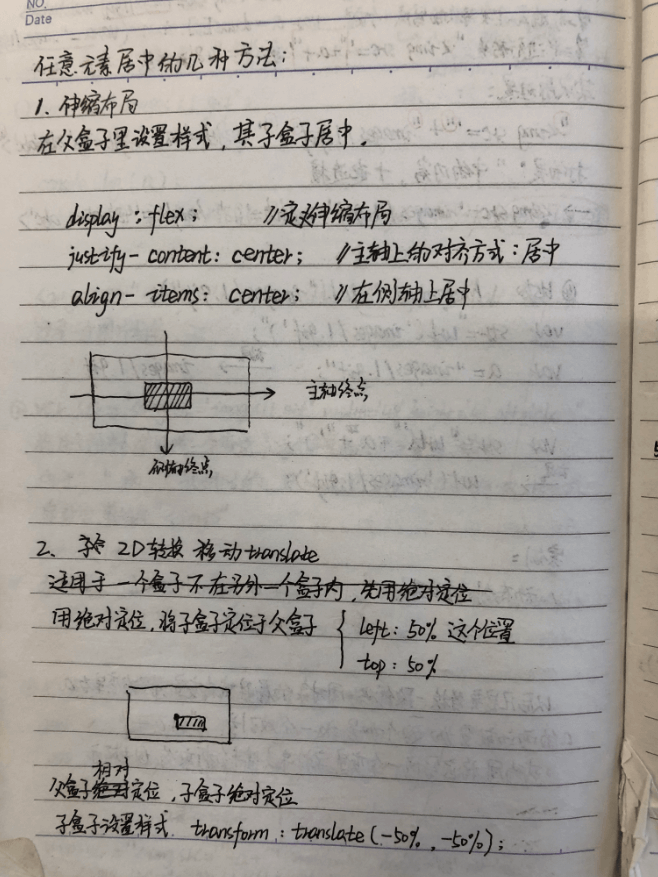 NO.
Date
任意元素居中的几种方法：
1. 伸缩布局
在父盒子里设置样式，其子盒子居中。
display : flex; //定义伸缩布局
justify-content: center; //主轴上的对齐方式：居中
align-items: center; //在侧轴上居中
主轴终点
侧轴终点
2. 2D转换 移动translate
适用于一个盒子不在另外一个盒子内，先用绝对定位
用绝对定位，将子盒子定位于父盒子 { left: 50% 这个位置
top: 50%
相对
父盒子绝对定位，子盒子绝对定位
子盒子设置样式. transform : translate(-50%, -50%);